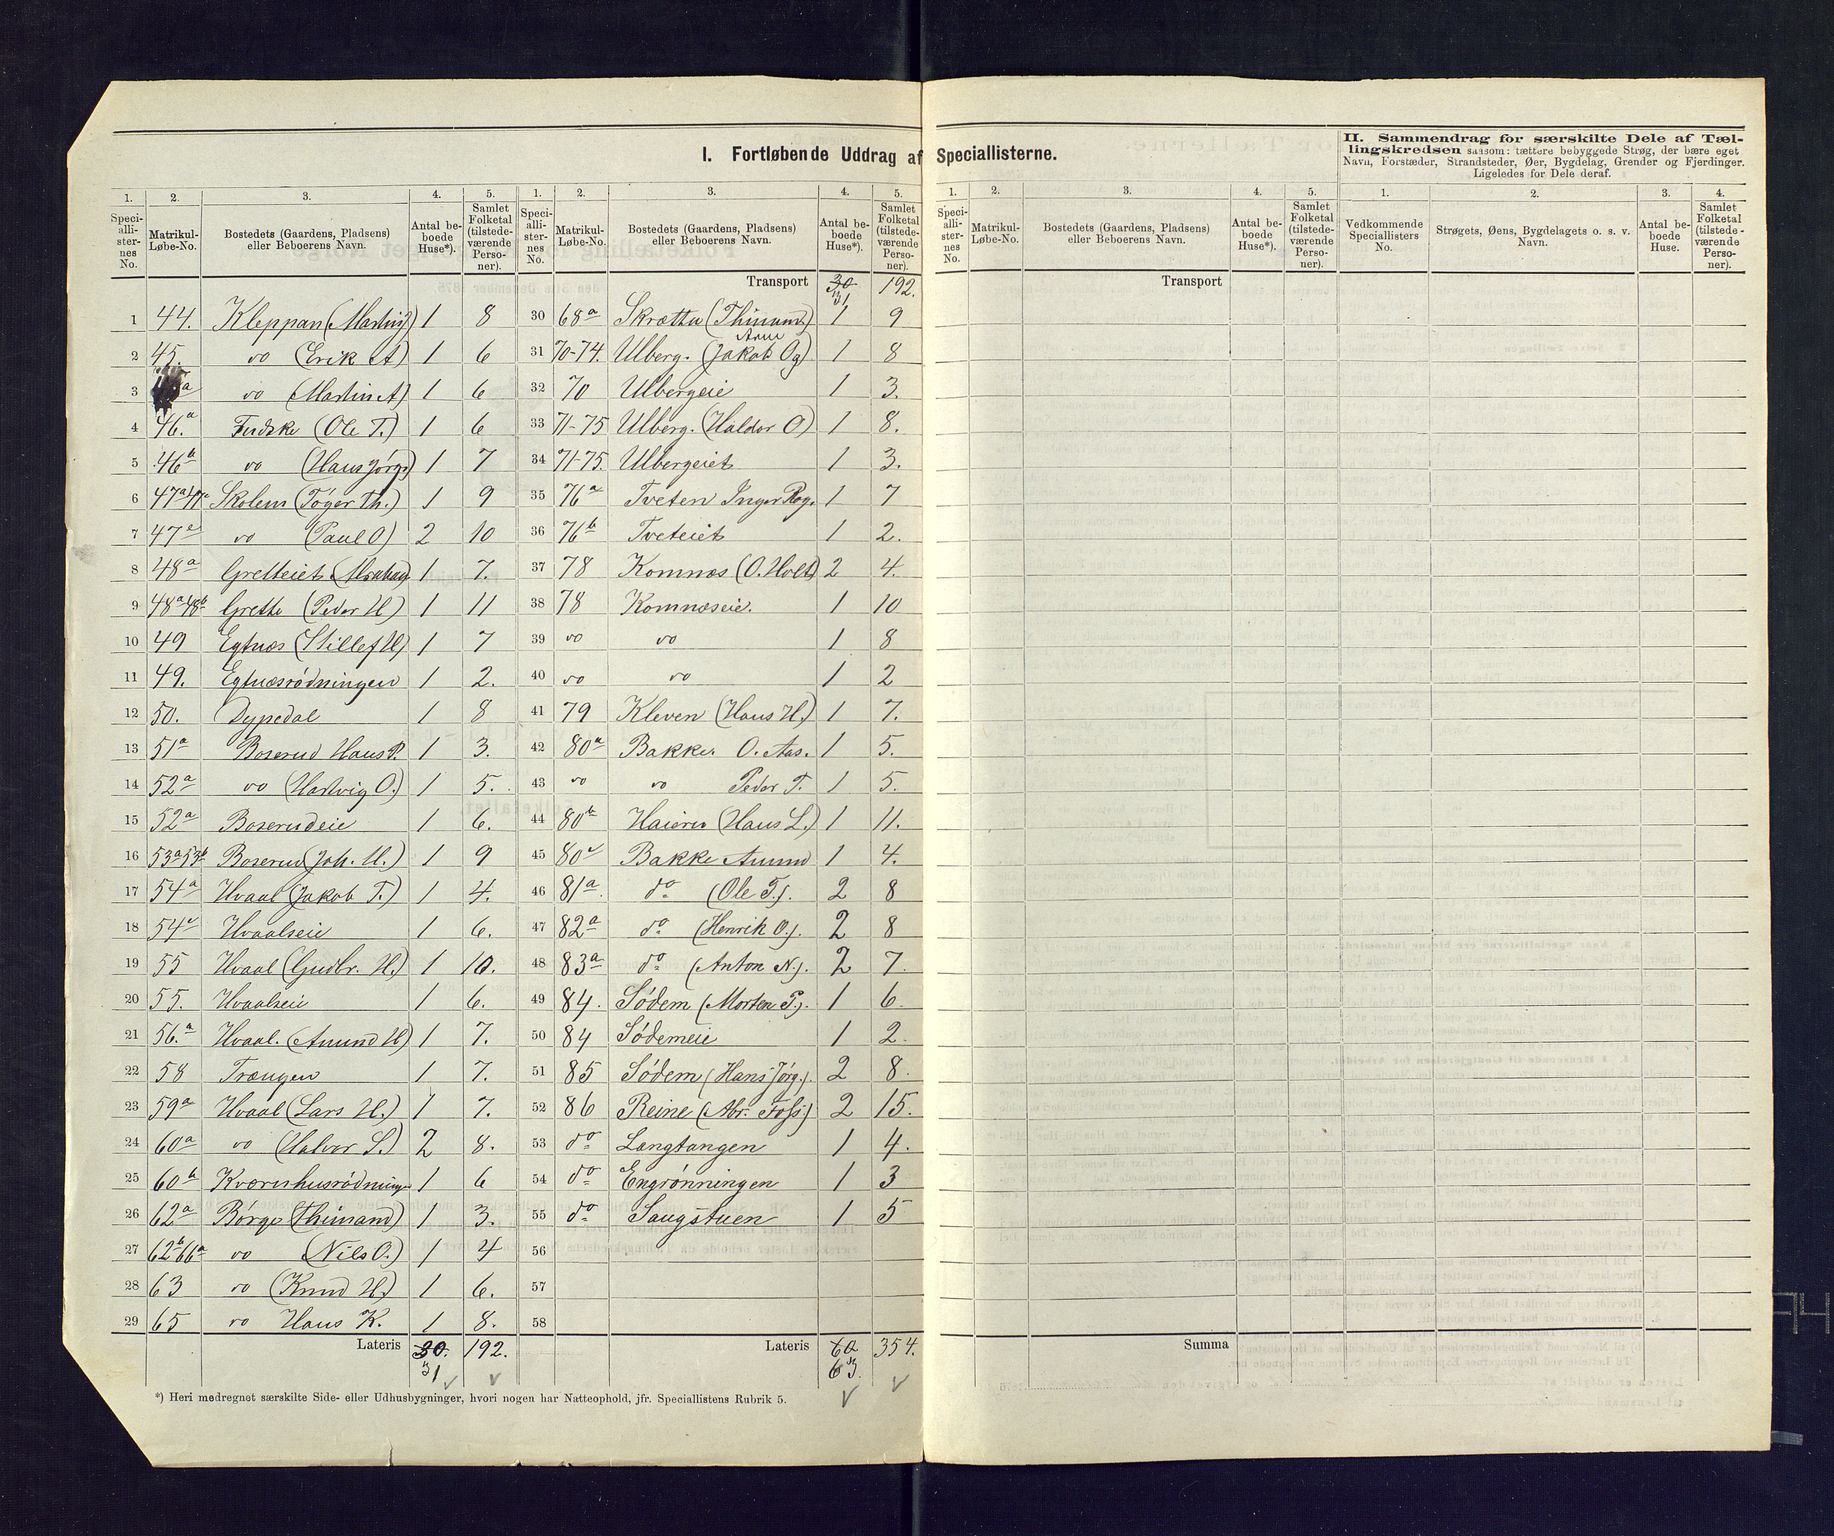 I. Fortløbende Uddrag af Speciallisterne.
II. Sammendrag for særskilte Dele af Tællingskredsen saasom: tættere bebyggede Strøg, der bære eget
Navn, Forstæder, Strandsteder, Øer, Bygdelag, Grender og Fjerdinger.
Ligeledes for Dele deraf.
1. 2. 3. 4. 5. 1. 2. 3. 4. 5. 1. 2. 3. 4. 5. 1. 2. 3. 4.
Speciallisternes No. Matrikul-Løbe-No. Bostedets (Gaardens, Pladsens) eller Beboerens Navn. Antal beboede Huse*). Samlet Folketal (tilstedeværende Personer).
Speciallisternes No. Matrikul-Løbe-No. Bostedets (Gaardens, Pladsens) eller Beboerens Navn. Antal beboede Huse*). Samlet Folketal (tilstedeværende Personer).
Speciallisternes No. Matrikul-Løbe-No. Bostedets (Gaardens, Pladsens) eller Beboerens Navn. Antal beboede Huse*). Samlet Folketal (tilstedeværende Personer).
Vedkommende Speciallisters No. Strøgets, Øens, Bygdelagets o. s. v. Navn. Antal beboede Huse. Samlet Folketal (tilstedeværende Personer).
1 44. Kleppan (Martin) 1 8
2 45. do (Erik A) 1 6
3 do (Martin A) 1 6
4 46.a Fudske (Ole T.) 1 6
5 46b do (Hans Jørgs) 1 7
6 47a Skolem (Tøger Th.) 1 9
7 47c do (Paul O) 2 10
8 48a Gretteiet (Abraham 1 7.
9 48a48b Grette (Peder H) 1 11
10 49 Egtnæs (Stillef H) 1 7
11 49. Egtnæsrødningen 1 2.
12 50. Dypedal 1 8
13 51a Boserud Hans P. 1 3.
14 52a do (Hartvig O.) 1 5.
15 52a Boserudeie 1 6.
16 53a53b Boserud (Joh. H.) 1 9
17 54a Hvaal (Jakob T.) 1 4.
18 54c Hvaalseie 1 6.
19 55 Hvaal (Gudbr. H.) 1 10.
20 55. Hvaalseie 1 6.
21 56.a Hvaal. (Amund H) 1 7.
22 58 Trængen 1 7.
23 59a Hvaal (Lars H.) 1 7.
24 60a do (Halvor S.) 2 8.
25 60b Kværnhusrødning 1 6
26 62a Børge (Thimand) 1 3.
27 62b66a do (Nils O.) 1 4
28 63 do (Knud H.) 1 6.
29 65 do Hans K. 1 8.
Lateris 30. 192.
31
Transport 30 192.
31
30 68a Skrætta (Thimand) 1 9
31 70-74. Ulberg. (Jakob Og) 1 8
32 70 Ulbergeie 1 3.
33 71-75 Ulberg. (Haldor O) 1 8.
34 71-75. Ulbergeiet 1 3.
35 76a Tveten Inger Rog. 1 7
36 76b Tveteiet 1 2.
37 78 Komnæs (O. Holt) 2 4.
38 78 Komnæseie. 1 10
39 do do 1 8
40 do do 1 2
41 79 Kleven (Hans H.) 1 7.
42 80a Bakke. O. Aas. 1 5.
43 do do Peder T. 1 5.
44 80b Haieren (Hans L.) 1 11.
45 80c Bakke Amund 1 4.
46 81a. do (Ole T.). 2 8
47 82a do (Henrik O.). 2 8
48 83a do (Anton N.). 2 7.
49 84. Sødem (Morten P.). 1 6.
50 84 Sødemeie 1 2.
51 85 Sødem (Hans Jørg.). 2 8.
52 86 Reine (Abr. Foss) 2 15.
53 do Langtangen 1 4.
54 do Engrønningen 1 3
55 do Saugstuen 1 5
56
57
58
Lateris 60 354.
63.
Transport
Summa
*) Heri medregnet særskilte Side- eller Udhusbygninger, hvori nogen har Natteophold, jfr. Speciallistens Rubrik 5.